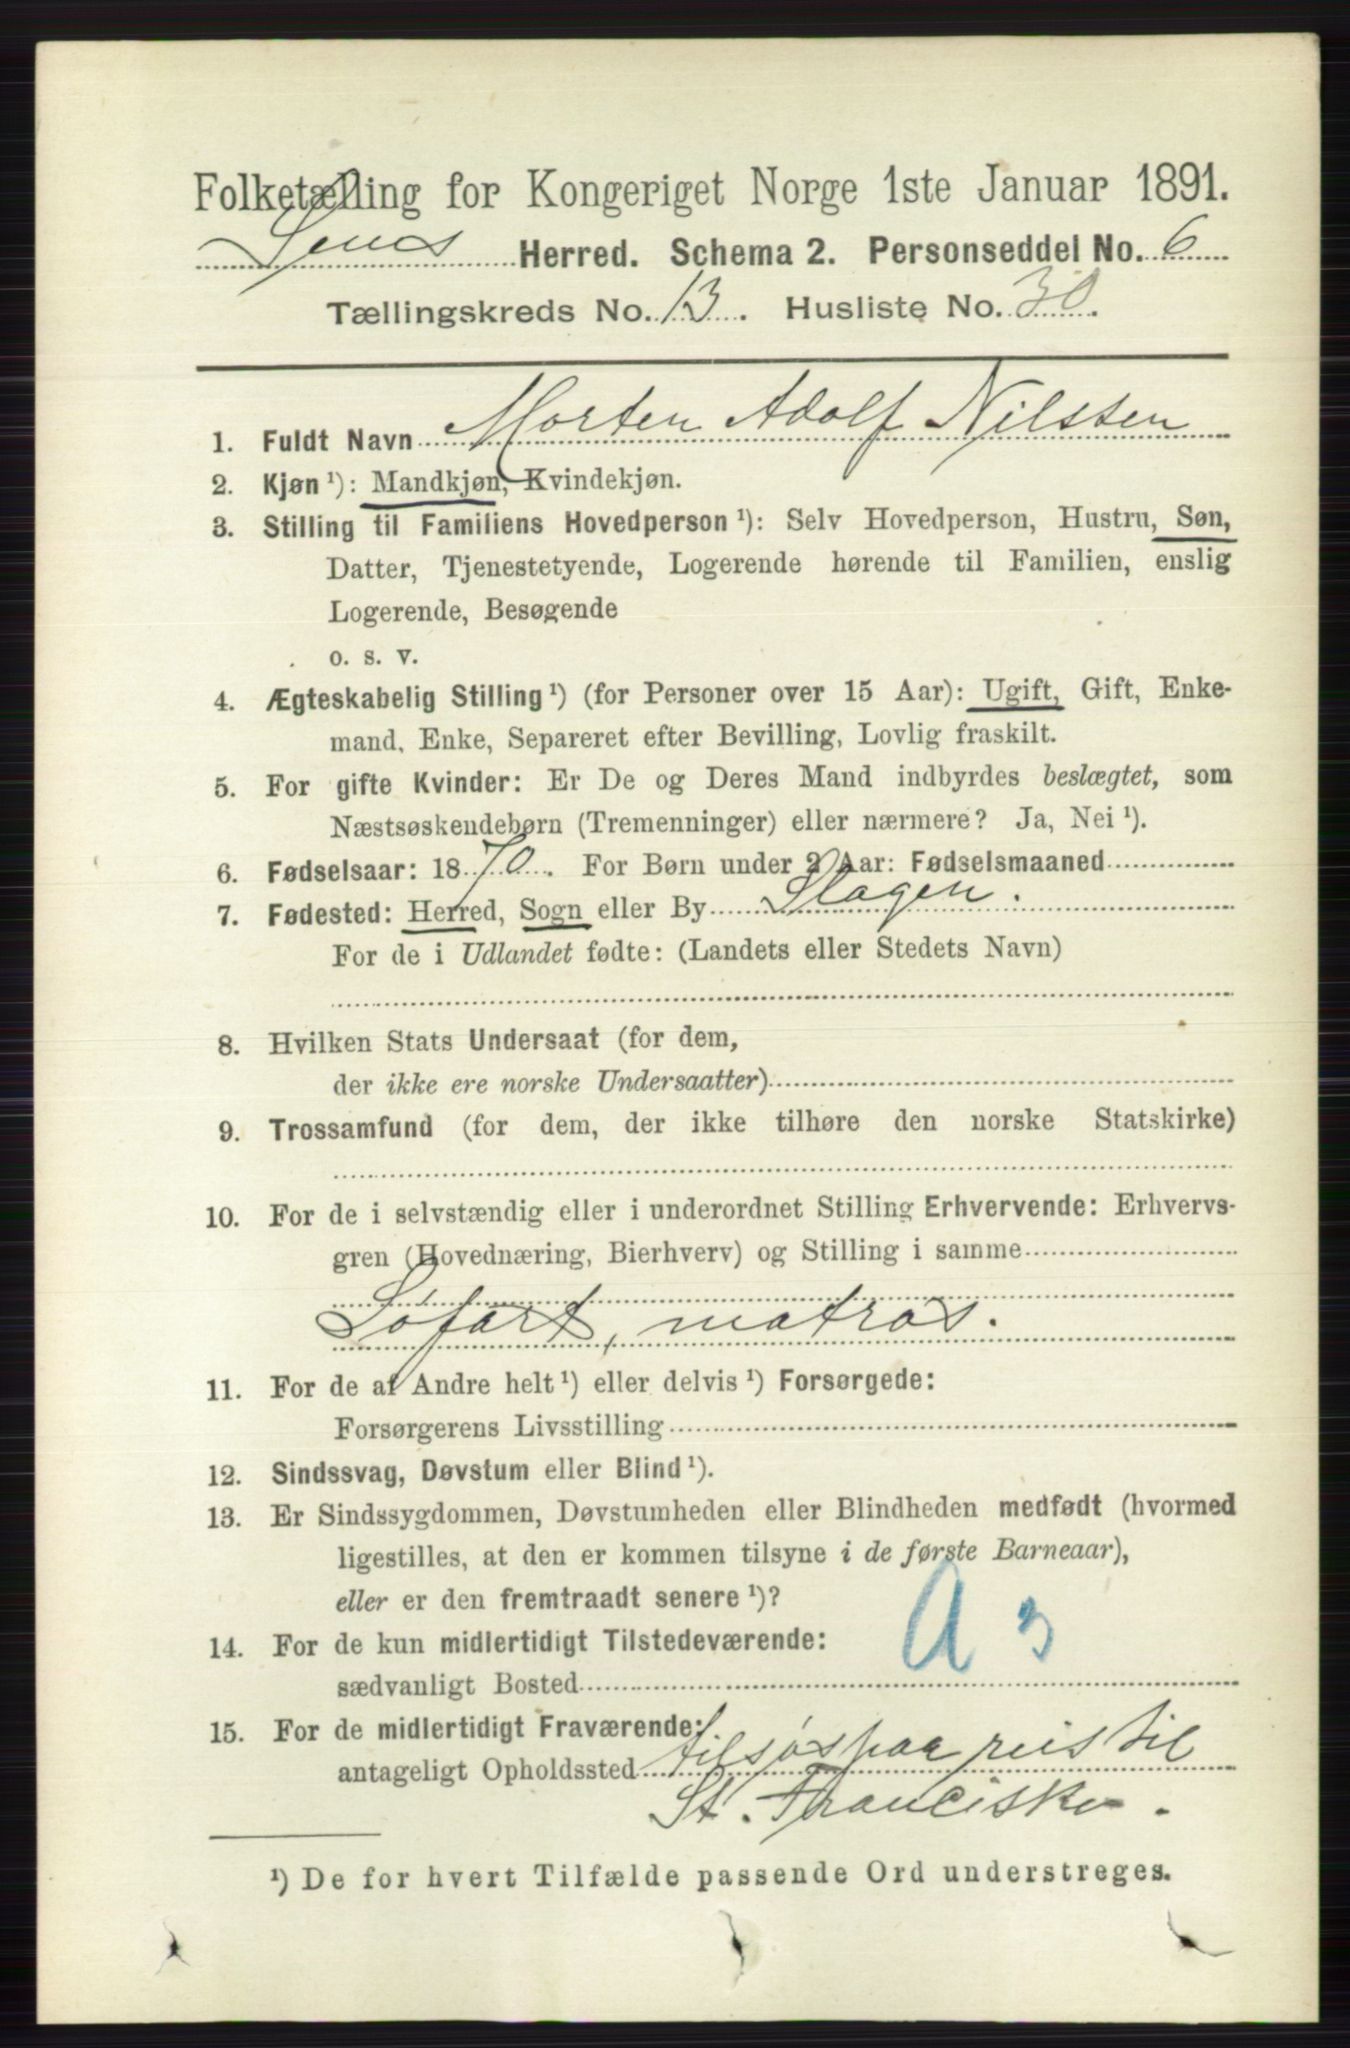 Folketælling for Kongeriget Norge 1ste Januar 1891.
Sems Herred. Schema 2. Personseddel No. 6
Tællingskreds No. 13. Husliste No. 30.
1. Fuldt Navn Morten Adolf Nilsten
2. Kjøn ¹): Mandkjøn, Kvindekjøn.
3. Stilling til Familiens Hovedperson ¹): Selv Hovedperson, Hustru, Søn,
Datter, Tjenestetyende, Logerende hørende til Familien, enslig
Logerende, Besøgende
o. s. v.
4. Ægteskabelig Stilling ¹) (for Personer over 15 Aar): Ugift, Gift, Enke-
mand, Enke, Separeret efter Bevilling, Lovlig fraskilt.
5. For gifte Kvinder: Er De og Deres Mand indbyrdes beslægtet, som
Næstsøskendebørn (Tremenninger) eller nærmere? Ja, Nei ¹).
6. Fødselsaar: 1870. For Børn under 2 Aar: Fødselsmaaned
7. Fødested: Herred, Sogn eller By Slagen.
For de i Udlandet fødte: (Landets eller Stedets Navn)
8. Hvilken Stats Undersaat (for dem,
der ikke ere norske Undersaatter)
9. Trossamfund (for dem, der ikke tilhøre den norske Statskirke)
10. For de i selvstændig eller i underordnet Stilling Erhvervende: Erhvervs-
gren (Hovednæring, Bierhverv) og Stilling i samme
Søfart, matros.
11. For de af Andre helt ¹) eller delvis ¹) Forsørgede:
Forsørgerens Livsstilling
12. Sindssvag, Døvstum eller Blind ¹).
13. Er Sindssygdommen, Døvstumheden eller Blindheden medfødt (hvormed
ligestilles, at den er kommen tilsyne i de første Barneaar),
eller er den fremtraadt senere ¹)?
A 3
14. For de kun midlertidigt Tilstedeværende:
sædvanligt Bosted
15. For de midlertidigt Fraværende:
antageligt Opholdssted tilsøs paa reis til
St. Francisko.
¹) De for hvert Tilfælde passende Ord understreges.